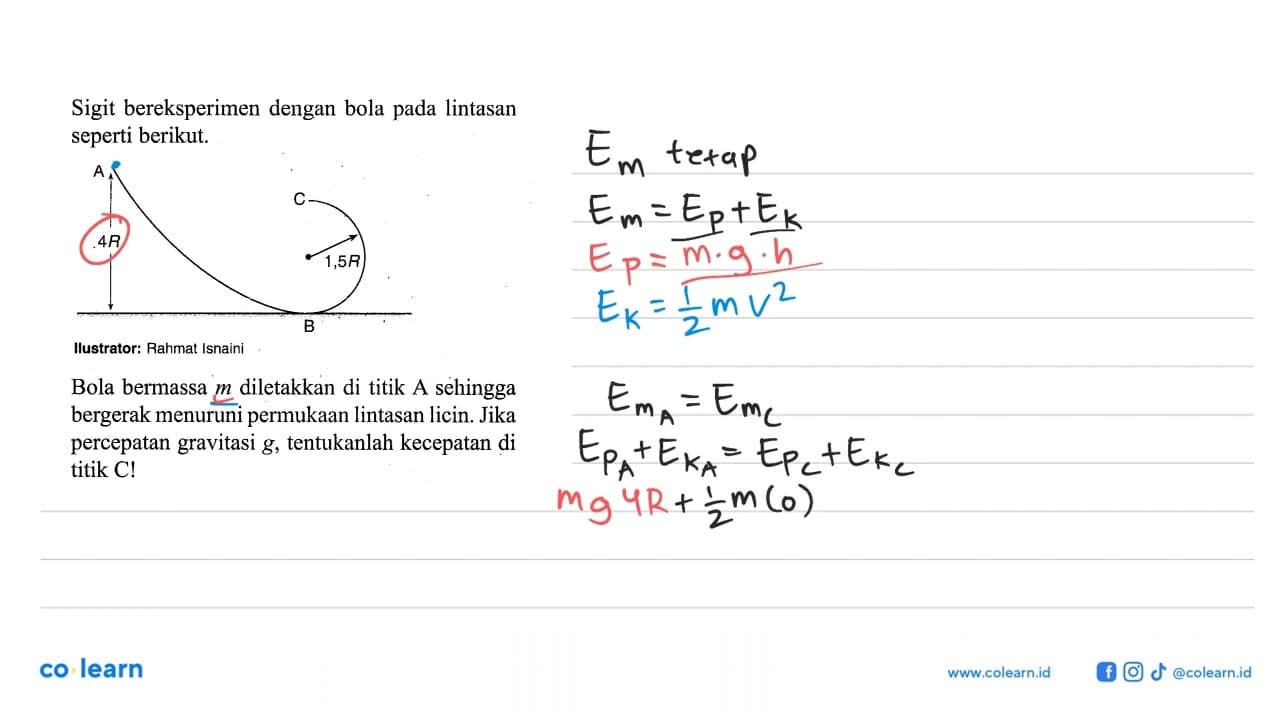 Sigit bereksperimen dengan bola pada lintasan
seperti berikut.
A
4R
C
1,5R
B
Ilustrator: Rahmat Isnaini
Bola bermassa m diletakkan di titik A sehingga
bergerak menuruni permukaan lintasan licin. Jika
percepatan gravitasi g, tentukanlah kecepatan di
titik C!
Em tetap
Em = Ep + Ek
Ep = m.g.h
Ek = 1/2 m v²
EmA = Emc
EpA + EkA = Epc + Ekc
mg4R + 1/2 m(0)
co learn
www.colearn.id
@colearn.id